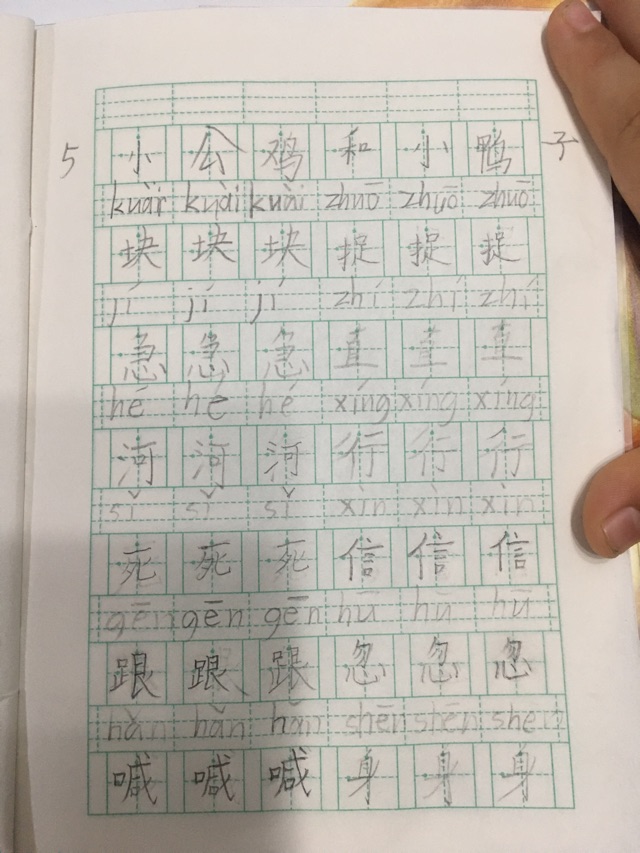 5 小公鸡和小鸭子
kuài kuài kuài zhuō zhuō zhuō
块块块捉捉捉
jí jí jí zhí zhí zhí
急急急直直直
hé hé hé xíng xíng xíng
河河河行行行
sǐ sǐ sǐ xìn xìn xìn
死死死信信信
gēn gēn gēn hū hū hū
跟跟跟忽忽忽
hǎn hǎn hǎn shēn shēn shēn
喊喊喊身身身